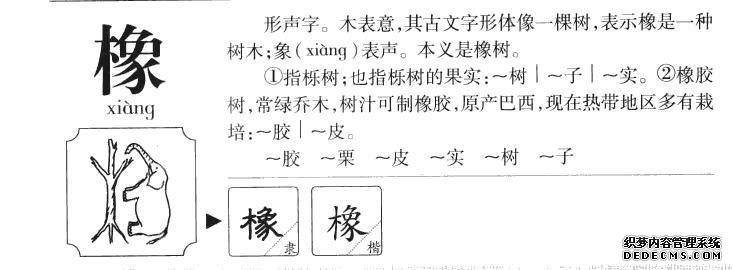 橡
xiàng
形声字。木表意,其古文字形体像一棵树,表示橡是一种
树木;象(xiàng)表声。本义是橡树。
①指栎树;也指栎树的果实:~树|~子|~实。②橡胶
树,常绿乔木,树汁可制橡胶,原产巴西,现在热带地区多有栽
培:~胶|~皮。
~胶 ~栗 ~皮 ~实 ~树 ~子
橡 隶
橡 楷
织梦内容管理系统
DEDECMS.COM